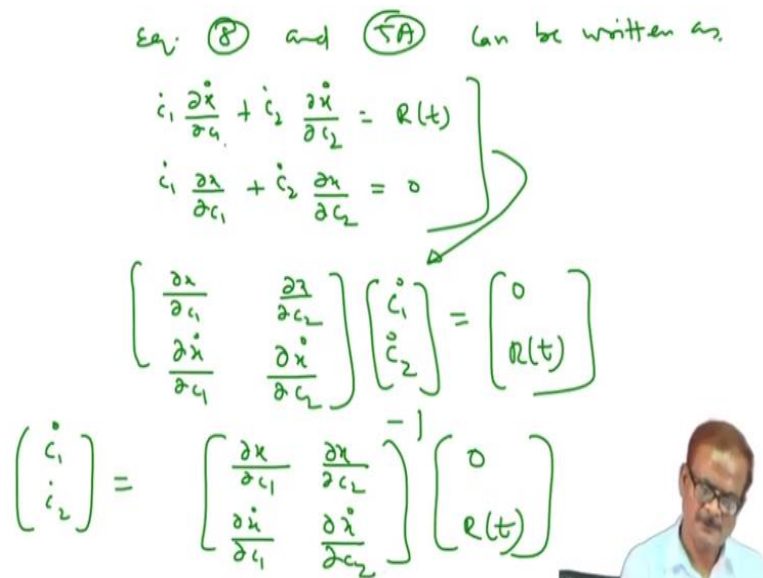 Eq. ⑧ and (5A) can be written as.
ċ₁ ∂ẋ/∂c₁ + ċ₂ ∂ẋ/∂c₂ = R(t)
ċ₁ ∂x/∂c₁ + ċ₂ ∂x/∂c₂ = 0
[ ∂x/∂c₁ ∂x/∂c₂ ; ∂ẋ/∂c₁ ∂ẋ/∂c₂ ] [ ċ₁ ; ċ₂ ] = [ 0 ; R(t) ]
( ċ₁ ; ċ₂ ) = [ ∂x/∂c₁ ∂x/∂c₂ ; ∂ẋ/∂c₁ ∂ẋ/∂c₂ ]⁻¹ ( 0 ; R(t) )